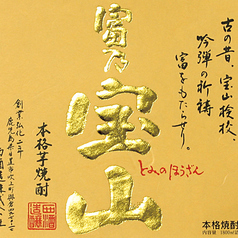 古の昔、宝山検校、
吟弾の祈祷
富をもたらせり。
富乃宝山
とみのほうざん
本格芋焼酎
創業弘化二年
鹿児島県日置市吹上町與倉
西酒造株式会社
本格焼酎